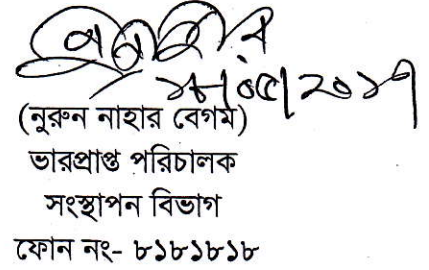 ১৮/০৫/২০১৭
(নুরুন নাহার বেগম)
ভারপ্রাপ্ত পরিচালক
সংস্থাপন বিভাগ
ফোন নং- ৮১৮১৮১৮